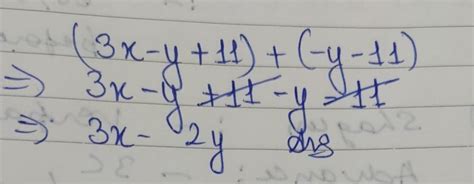 (3x-y+11)+(-y-11)
⇒ 3x-y+11-y-11
⇒ 3x-2y Ans